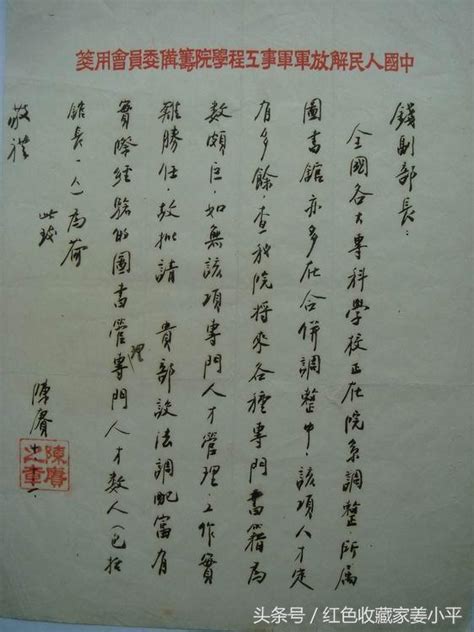 中國人民解放軍軍事工程學院籌備委員會用箋
錢副部長：
全國各大專科學校正在院系調整，所屬
圖書館亦多在合併調整中，該項人才定
有多餘，查我院將來各種專門書籍為
數頗巨，如無該項專門人才管理，工作實
難勝任，故拟請 貴部設法調配富有
實際經驗的圖書管理專門人才數人（包括
館長一人）為荷
此致
敬禮
陳賡
陳賡之章
头条号／红色收藏家姜小平